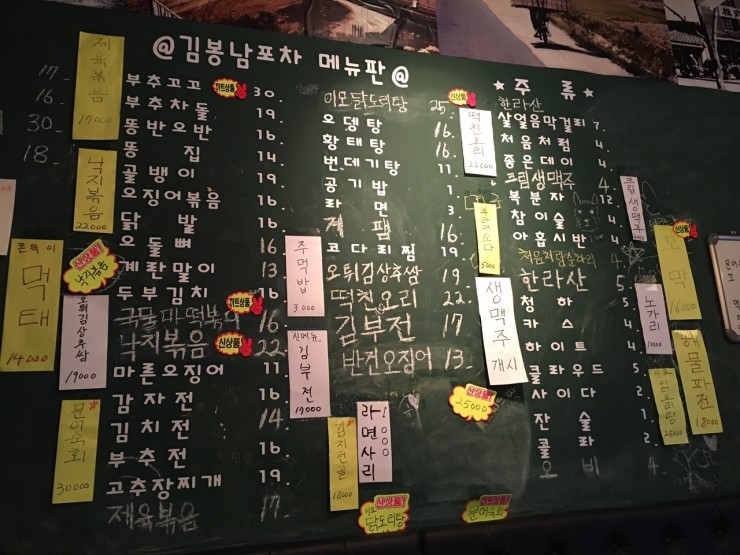 @김봉남포차 메뉴판@
제육볶음
17000
17-
16-
30-
18-
낙지볶음
22000
쫀득이
먹태
14000
신상품!
낙지볶음
오튀김상추쌈
19000
문어숙회
30000
부추꼬꼬 히트상품 30.
부추차돌 19.
똥반오반 16.
똥집 14.
골뱅이 19.
오징어볶음 16.
닭발 16.
오돌뼈 16
계란말이 13
두부김치 16.
히트상품
국물파떡볶이 16
낙지볶음 신상품 22
마른오징어 11.
감자전 16.
김치전 14
부추전 16.
고추장찌개 19.
제육볶음 17-
이모닭도리탕 25. 신상품
오뎅탕 16.
황태탕 16.
번데기탕 11
공기밥 1.
라면 3.
계팸 16.
코다리찜 19
오튀김상추쌈 19-
떡친오리 22.
김부전 17
반건오징어 13-
주먹밥
3000
신메뉴
김부전
17000
김치전골
18000
라면사리
1000
신상품!
닭도리탕
떡친오리
22000
5000
생맥주
개시
신상품!
25000
히트상품!
문어숙회
★주류★
한라산
살얼음막걸리 7
처음처럼 4
좋은데이 4
크림생맥주 4
복분자 12
참이슬 4
처음처럼순하리
한라산 5
청하 5
카스 4
하이트 4
클라우드 5
사이다 2
잔술
콜라
오비 4
크림생맥주
꼬막
16000
신상품
노가리
10000
해물파전
18000
이모닭도리탕
25000